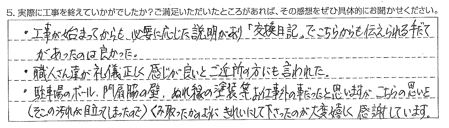 5. 実際に工事を終えていかがでしたか？ご満足いただいたところがあれば、その感想をぜひ具体的にお聞かせください。
・工事が始まってからも、必要に応じた説明があり「交換日記」でこちらからも伝えられる手だて
があったのは良かった。
・職人さん達が礼儀正しく感じが良いとご近所の方にも言われた。
・駐車場のポール、門扉脇の壁、ぬれ縁の塗装等お仕事外の事だったと思いますが、こちらの思いを
(そこの汚れが目立ってしまったので)くみ取ったかのようにきれいにして下さったのが大変嬉しく感謝しています。